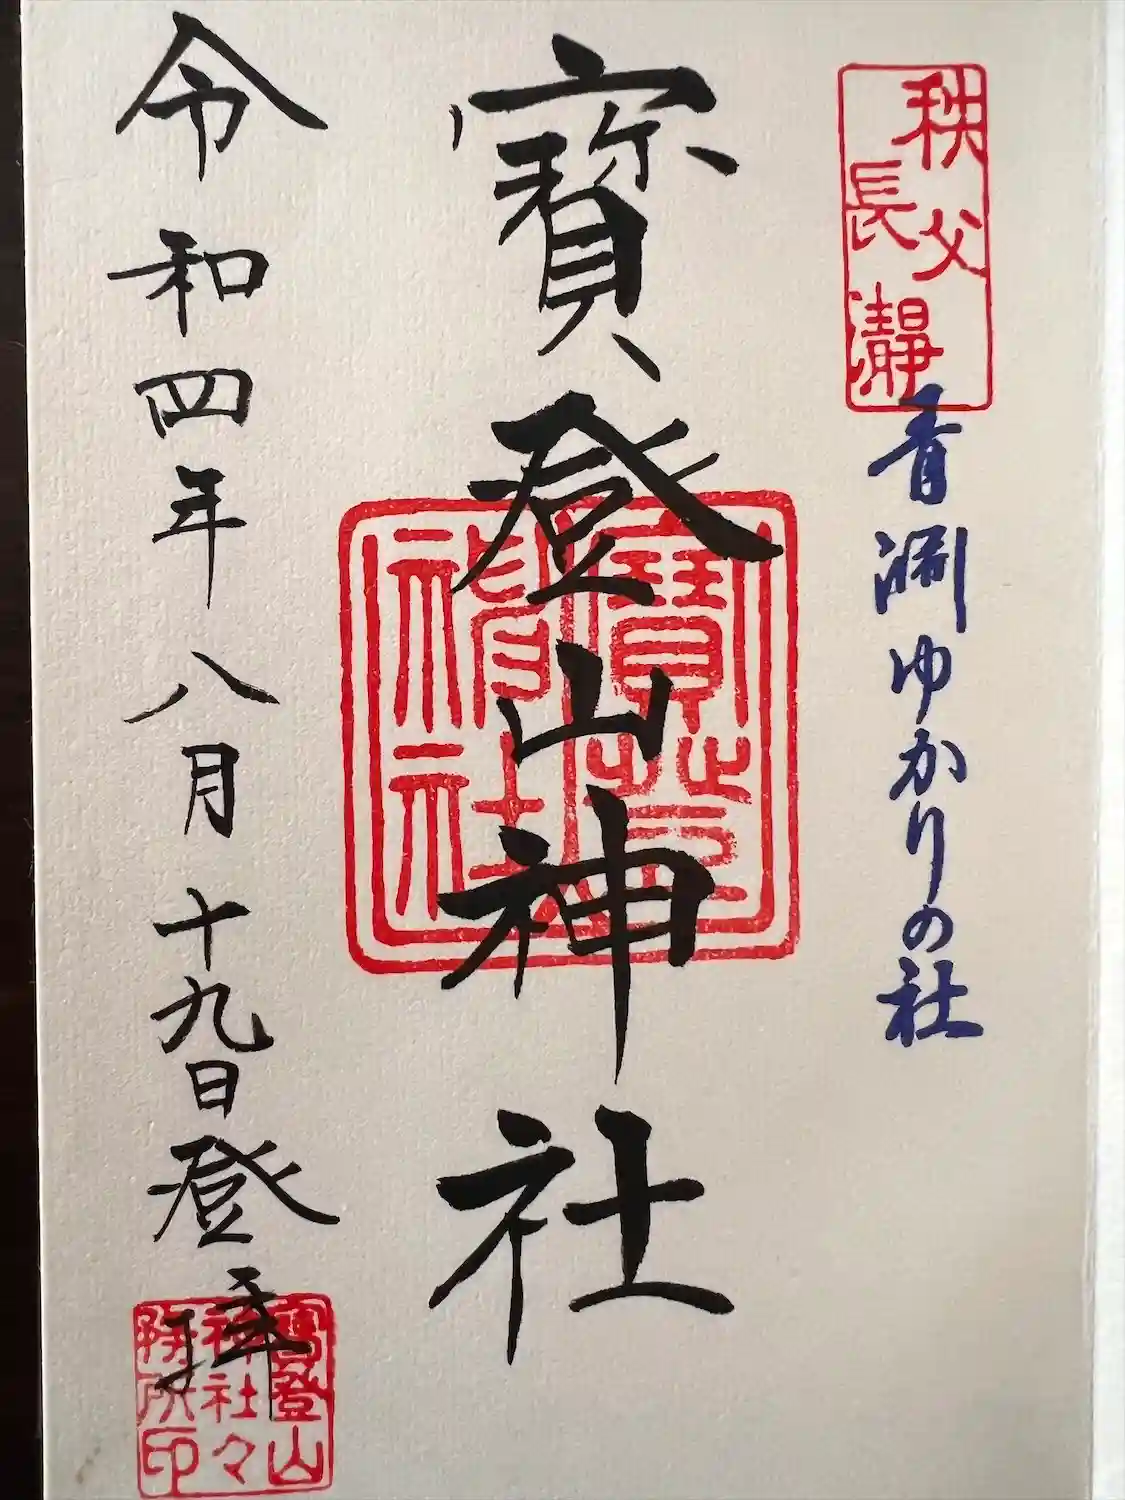 秩父
長瀞
青淵ゆかりの社
寳登山神社
寳登
神社
令和四年八月十九日登拝
寳登山
神社々
務所印